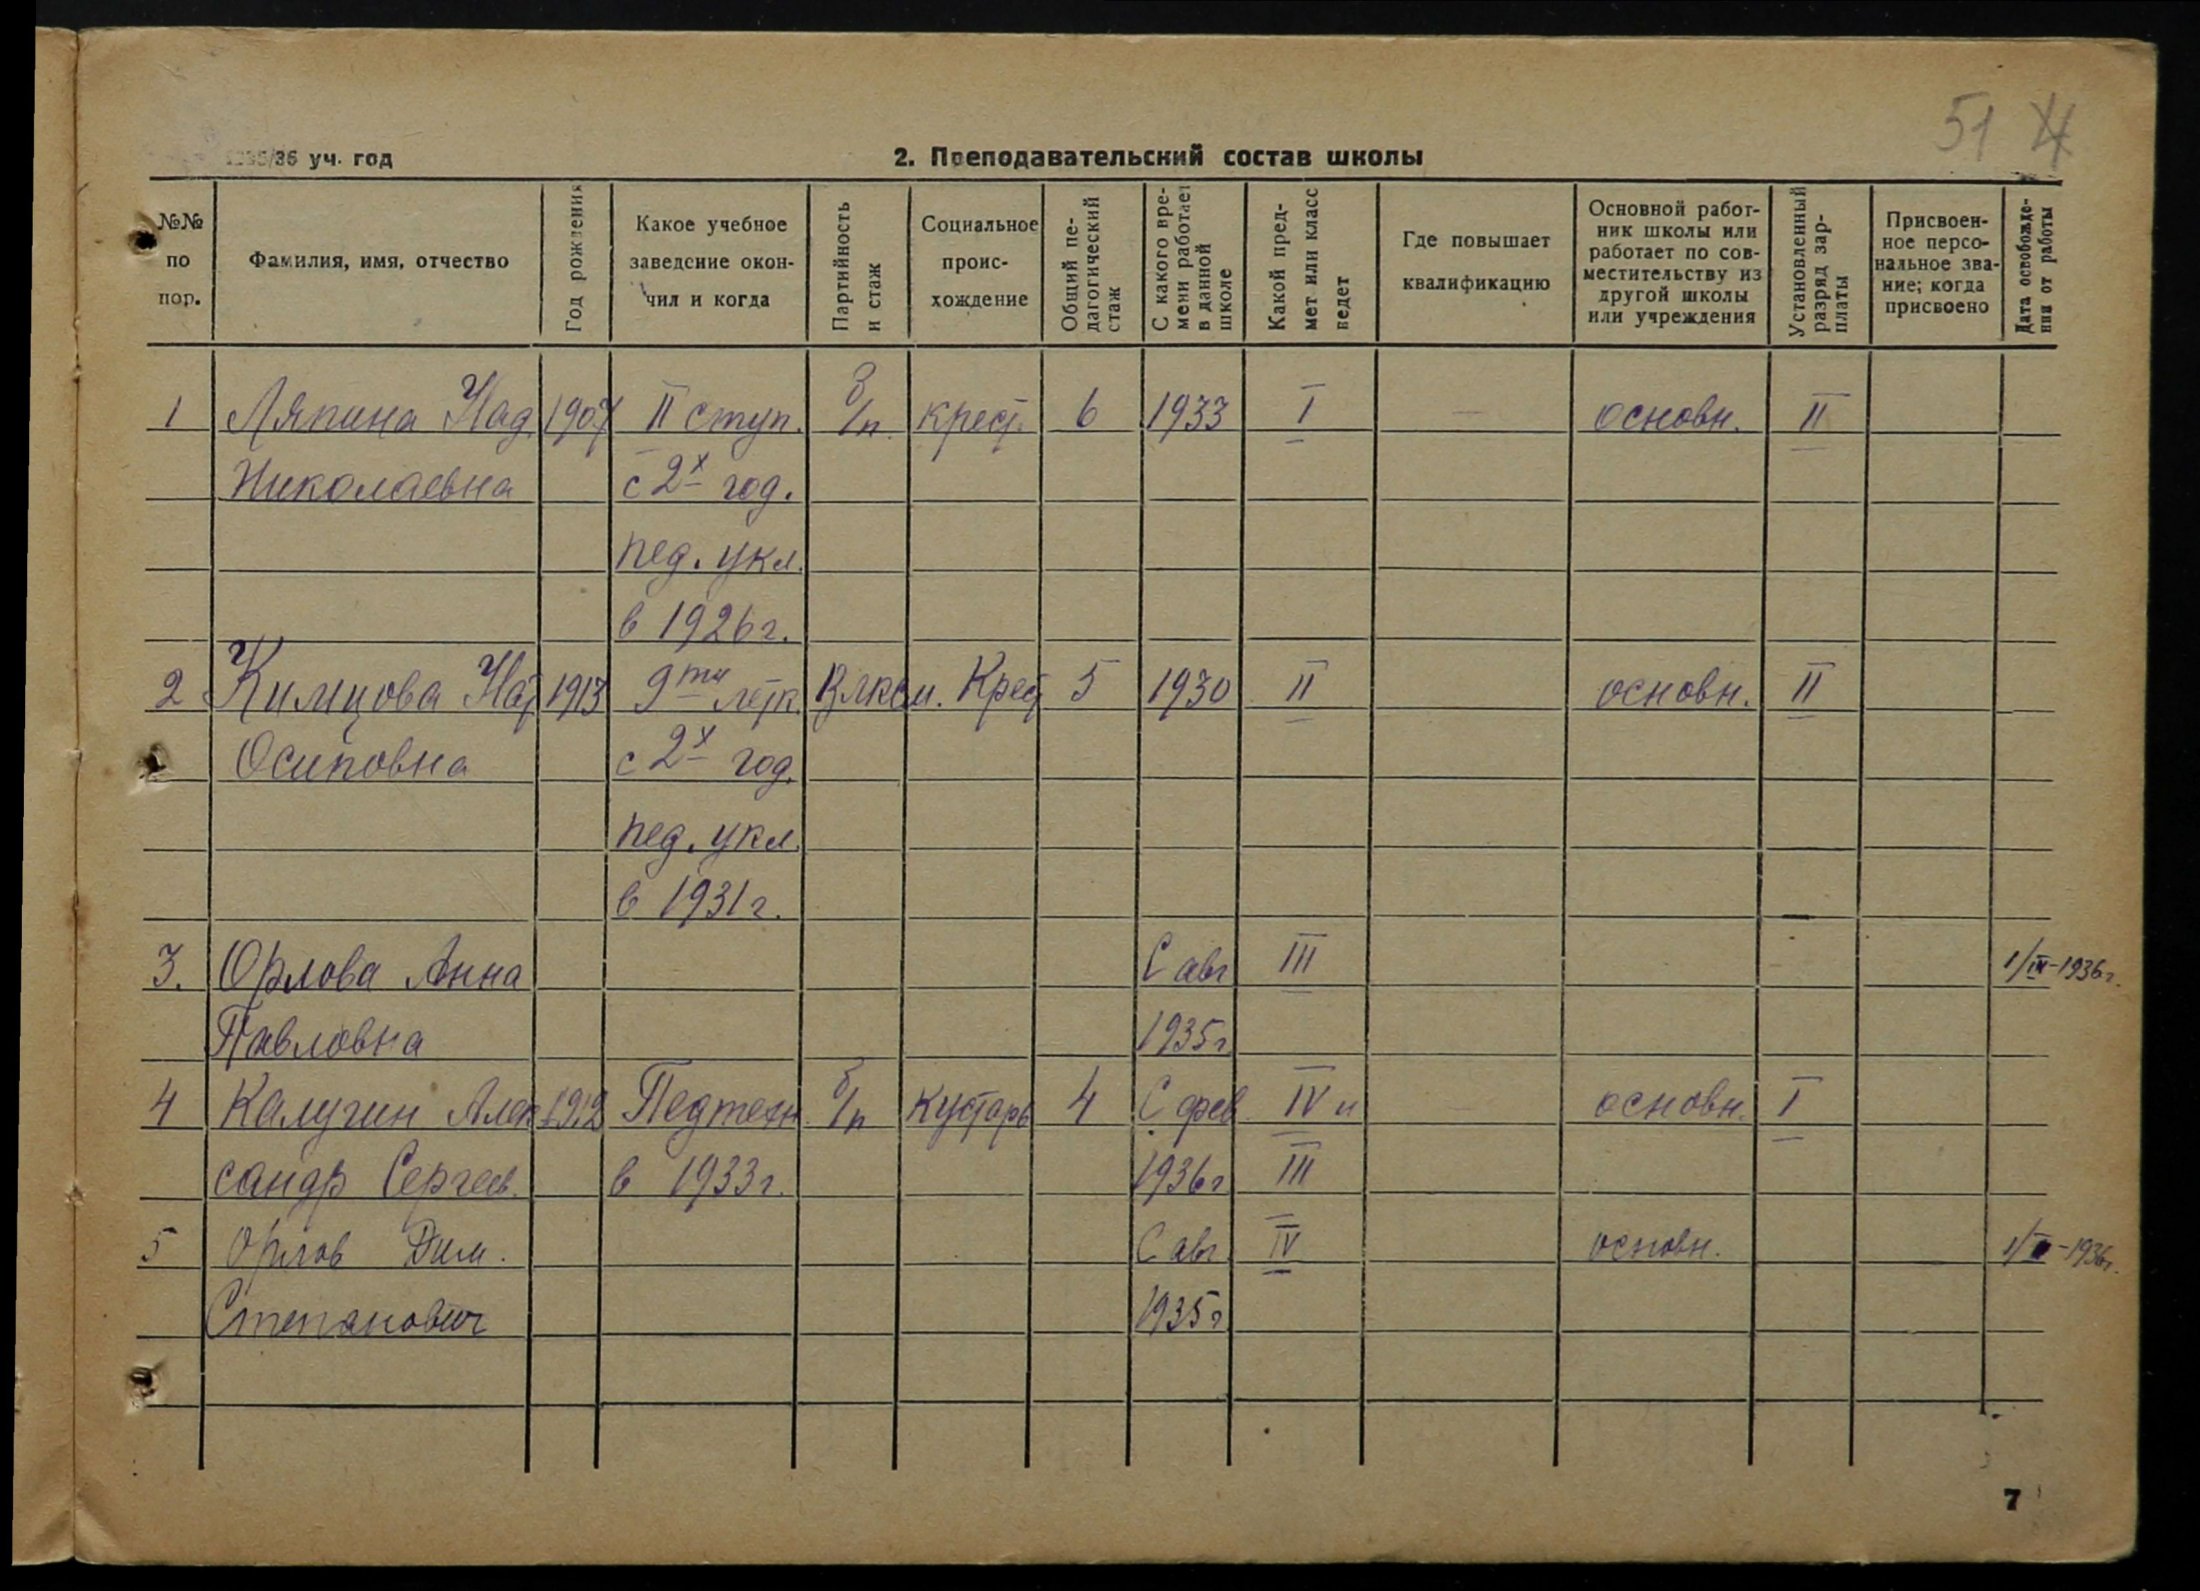 51
1935/36 уч. год
2. Преподавательский состав школы
№№ по пор.
Фамилия, имя, отчество
Год рождения
Какое учебное заведение окончил и когда
Партийность и стаж
Социальное происхождение
Общий педагогический стаж
С какого времени работает в данной школе
Какой предмет или класс ведет
Где повышает квалификацию
Основной работник школы или работает по совместительству из другой школы или учреждения
Установленный разряд зарплаты
Присвоенное персональное звание; когда присвоено
Дата освобождения от работы
1 Ляпина Над. 1907 II ступ. б/п. крест. 6 1933 I — основн. II
Николаевна с 2х год.
пед. укл.
в 1926 г.
2 Климцова Нат 1913 9ти летк. Влксм. Крест 5 1930 II основн. II
Осиповна с 2х год.
пед. укл.
в 1931 г.
3. Орлова Анна С авг III 1/III-1936 г.
Павловна 1935 г
4 Калугин Алек 1912 Педтехн. б/п кустарь 4 С фев IV и — основн. I
сандр Сергеев. в 1933 г. 1936 г III
5 Орлов Дим. С авг IV основн. -1936 г.
Степанович 1935 г
7